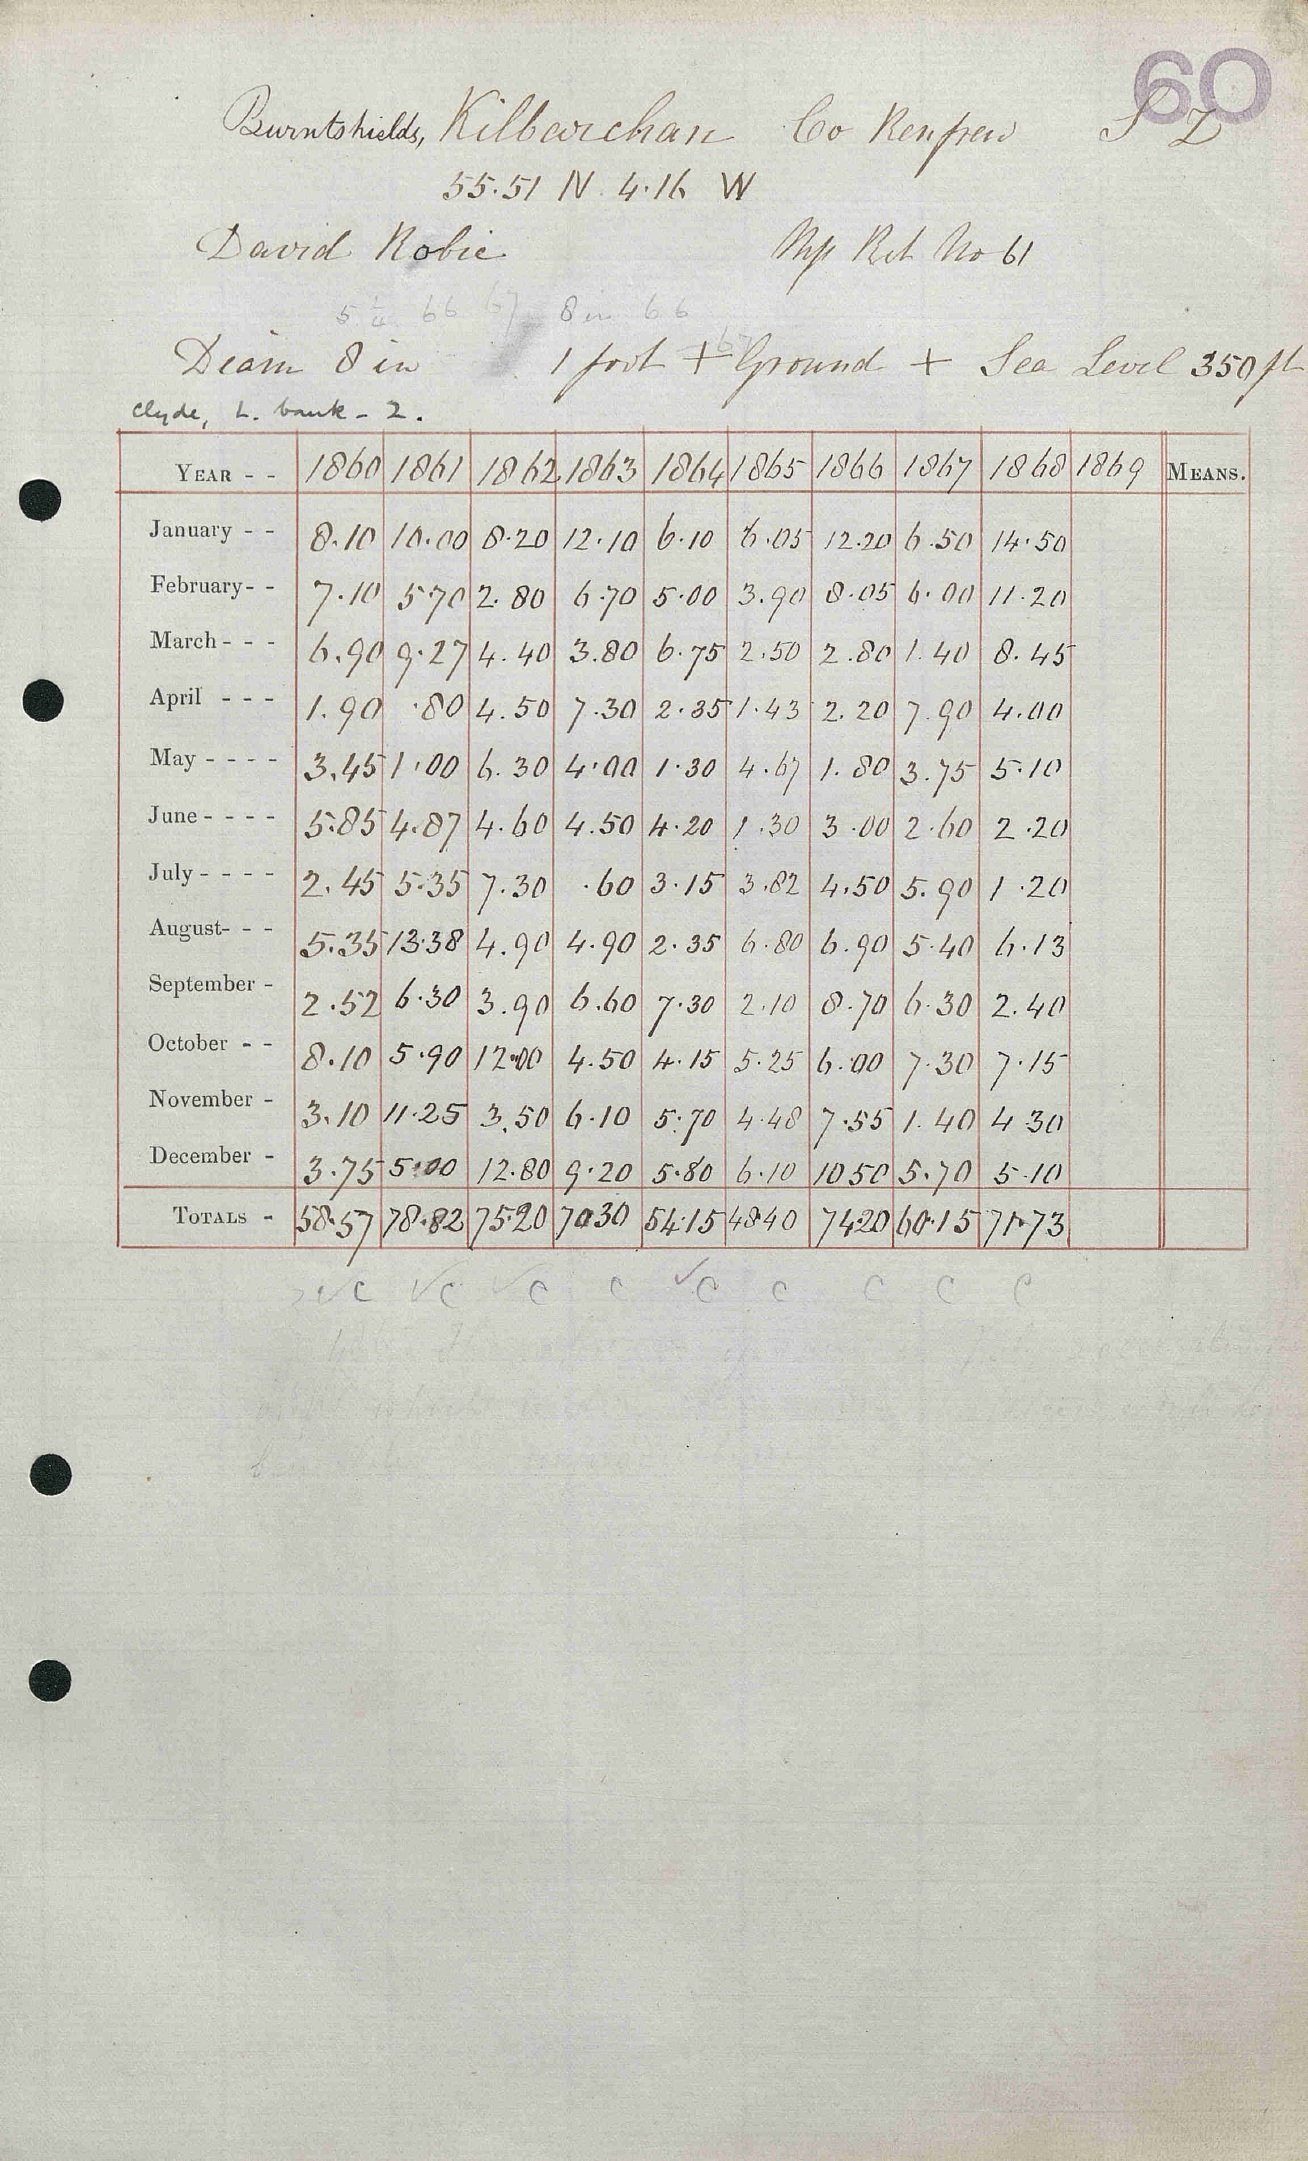 60
Burntshields, Kilbarchan Co Renfrew S Z
55.51 N 4.16 W
David Robie Ret No 61
5 1/4 66 67 8 in 66
67
Diam 8 in 1 foot + Ground + Sea Level 350 ft
Clyde, L. bank - 2.
YEAR - - 1860 1861 1862 1863 1864 1865 1866 1867 1868 1869 MEANS.
January - - 8.10 10.00 8.20 12.10 6.10 6.05 12.20 6.50 14.50
February - - 7.10 5.70 2.80 6.70 5.00 3.90 8.05 6.00 11.20
March - - - 6.90 9.27 4.40 3.80 6.75 2.50 2.80 1.40 8.45
April - - - 1.90 .80 4.50 7.30 2.35 1.43 2.20 7.90 4.00
May - - - - 3.45 1.00 6.30 4.00 1.30 4.67 1.80 3.75 5.10
June - - - - 5.85 4.87 4.60 4.50 4.20 1.30 3.00 2.60 2.20
July - - - - 2.45 5.35 7.30 .60 3.15 3.82 4.50 5.90 1.20
August - - - 5.35 13.38 4.90 4.90 2.35 6.80 6.90 5.40 6.13
September - 2.52 6.30 3.90 6.60 7.30 2.10 8.70 6.30 2.40
October - - 8.10 5.90 12.00 4.50 4.15 5.25 6.00 7.30 7.15
November - 3.10 11.25 3.50 6.10 5.70 4.48 7.55 1.40 4.30
December - 3.75 5.00 12.80 9.20 5.80 6.10 10 50 5.70 5.10
TOTALS - 58.57 78.82 75.20 70 30 54.15 48 40 74.20 60.15 71.73
✓ C ✓ C ✓ C C ✓ C C C C C